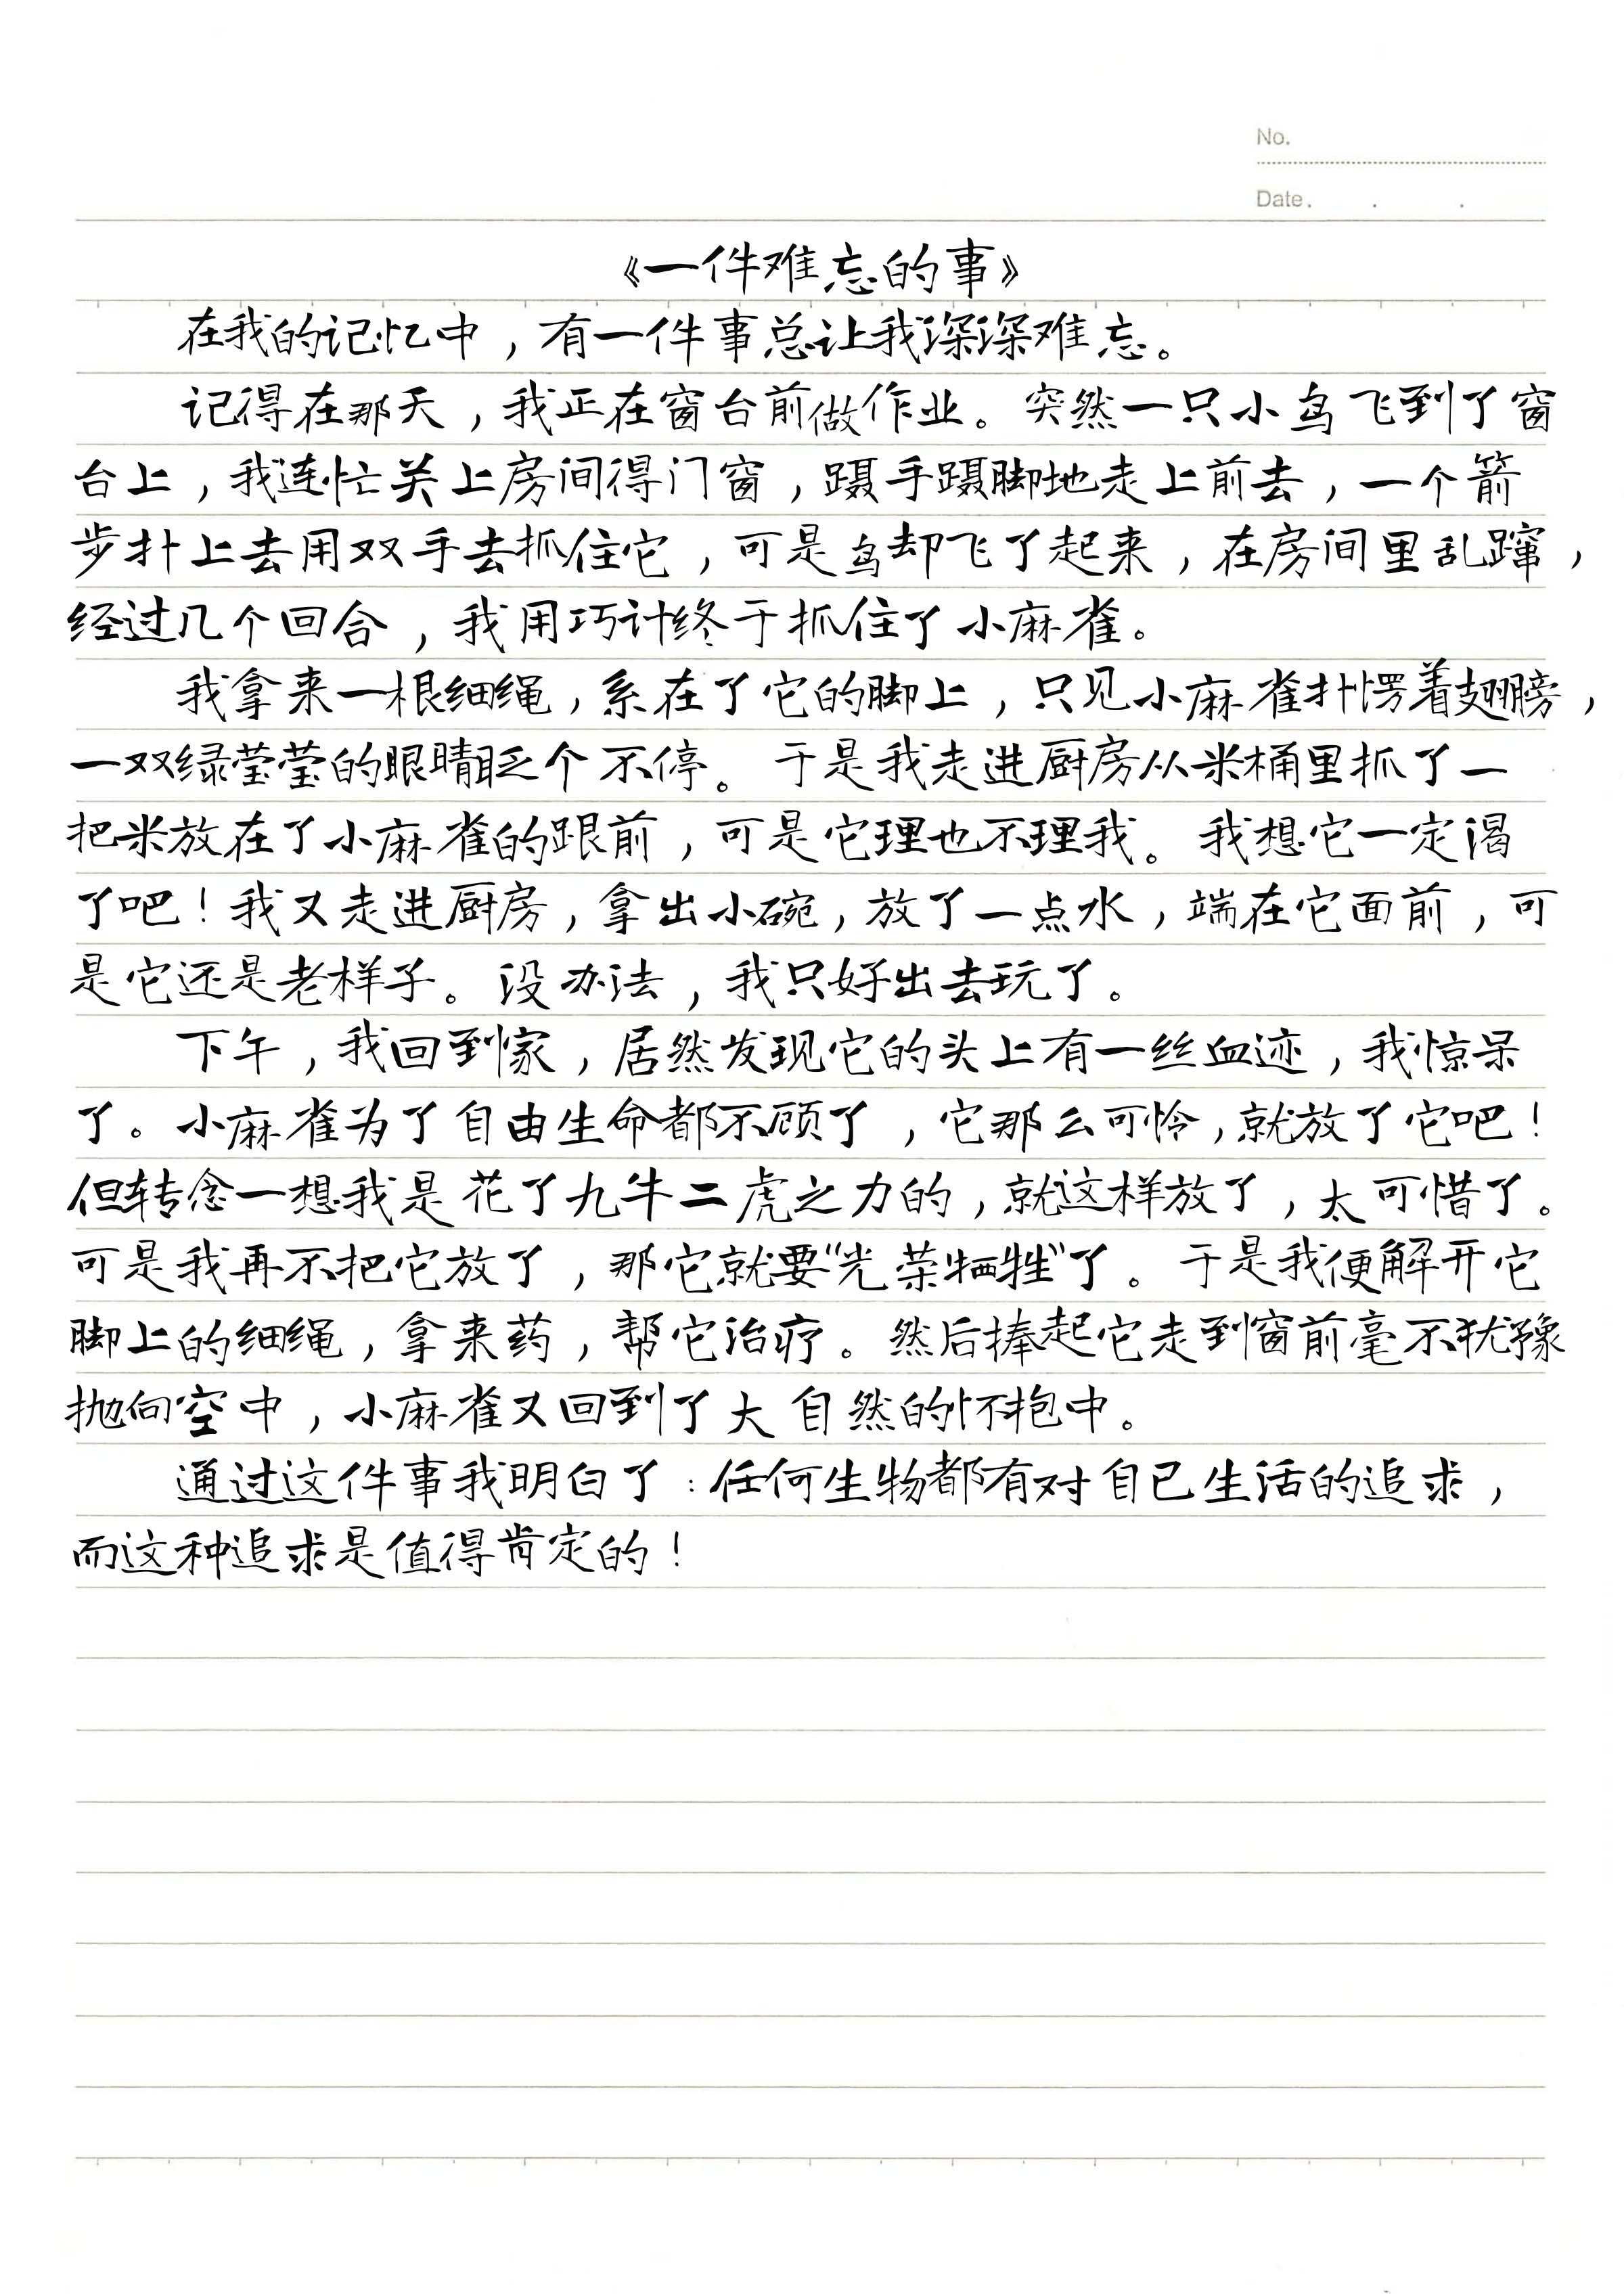 No.
Date.   .   .
《一件难忘的事》
在我的记忆中，有一件事总让我深深难忘。
记得在那天，我正在窗台前做作业。突然一只小鸟飞到了窗
台上，我连忙关上房间得门窗，蹑手蹑脚地走上前去，一个箭
步扑上去用双手去抓住它，可是鸟却飞了起来，在房间里乱蹿，
经过几个回合，我用巧计终于抓住了小麻雀。
我拿来一根细绳，系在了它的脚上，只见小麻雀扑愣着翅膀，
一双绿莹莹的眼睛眨个不停。于是我走进厨房从米桶里抓了一
把米放在了小麻雀的跟前，可是它理也不理我。我想它一定渴
了吧！我又走进厨房，拿出小碗，放了一点水，端在它面前，可
是它还是老样子。没办法，我只好出去玩了。
下午，我回到家，居然发现它的头上有一丝血迹，我惊呆
了。小麻雀为了自由生命都不顾了，它那么可怜，就放了它吧！
但转念一想我是花了九牛二虎之力的，就这样放了，太可惜了。
可是我再不把它放了，那它就要“光荣牺牲”了。于是我便解开它
脚上的细绳，拿来药，帮它治疗。然后捧起它走到窗前毫不犹豫
抛向空中，小麻雀又回到了大自然的怀抱中。
通过这件事我明白了：任何生物都有对自己生活的追求，
而这种追求是值得肯定的！